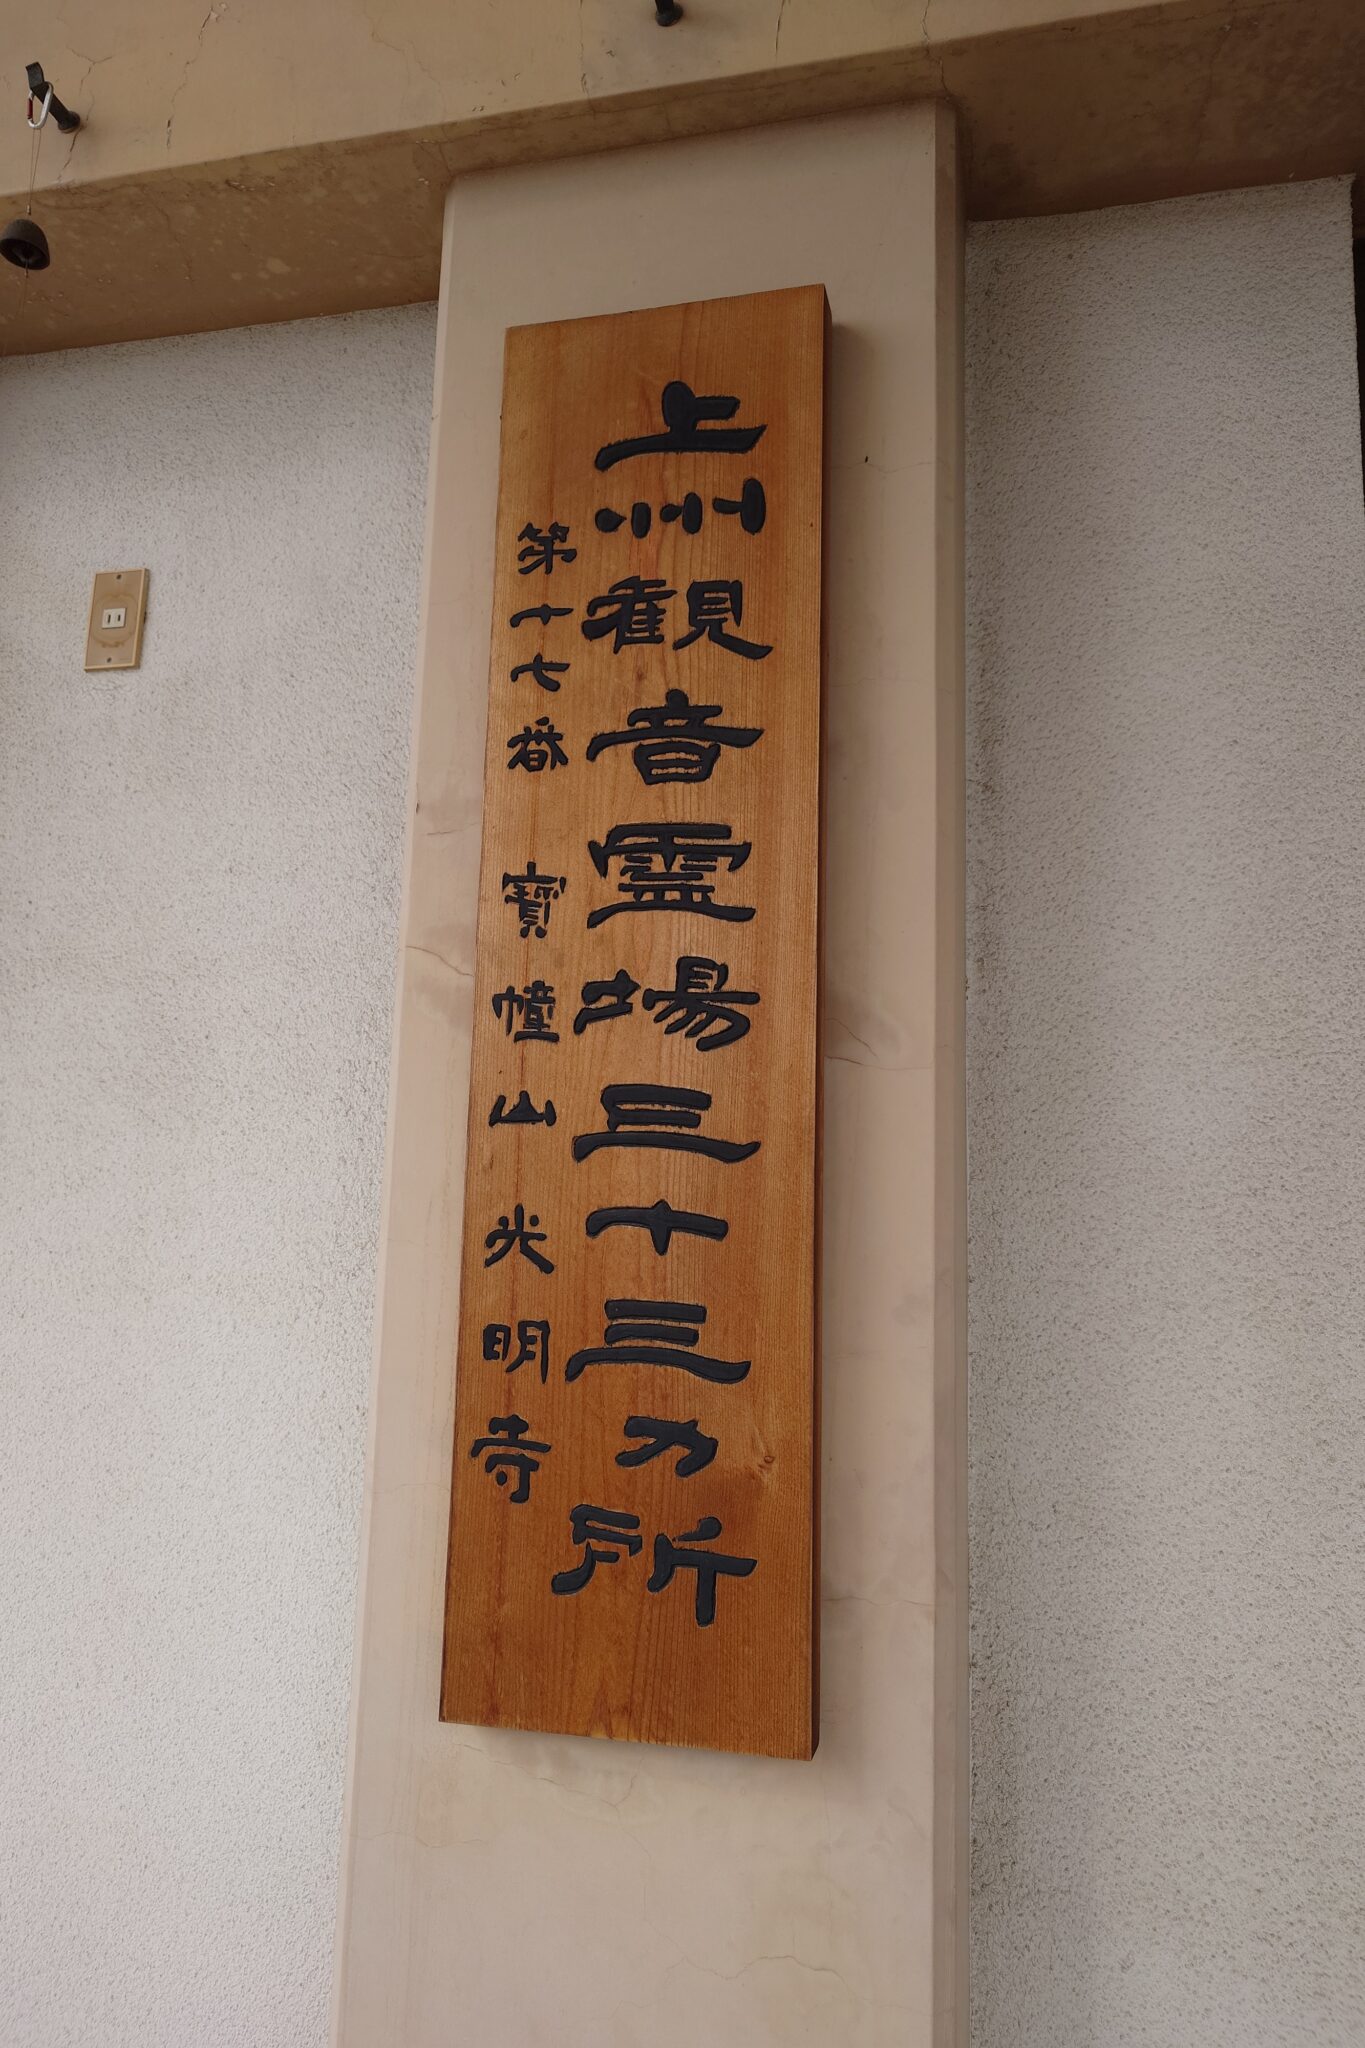 上州観音霊場三十三カ所
第十七番 寶幢山光明寺